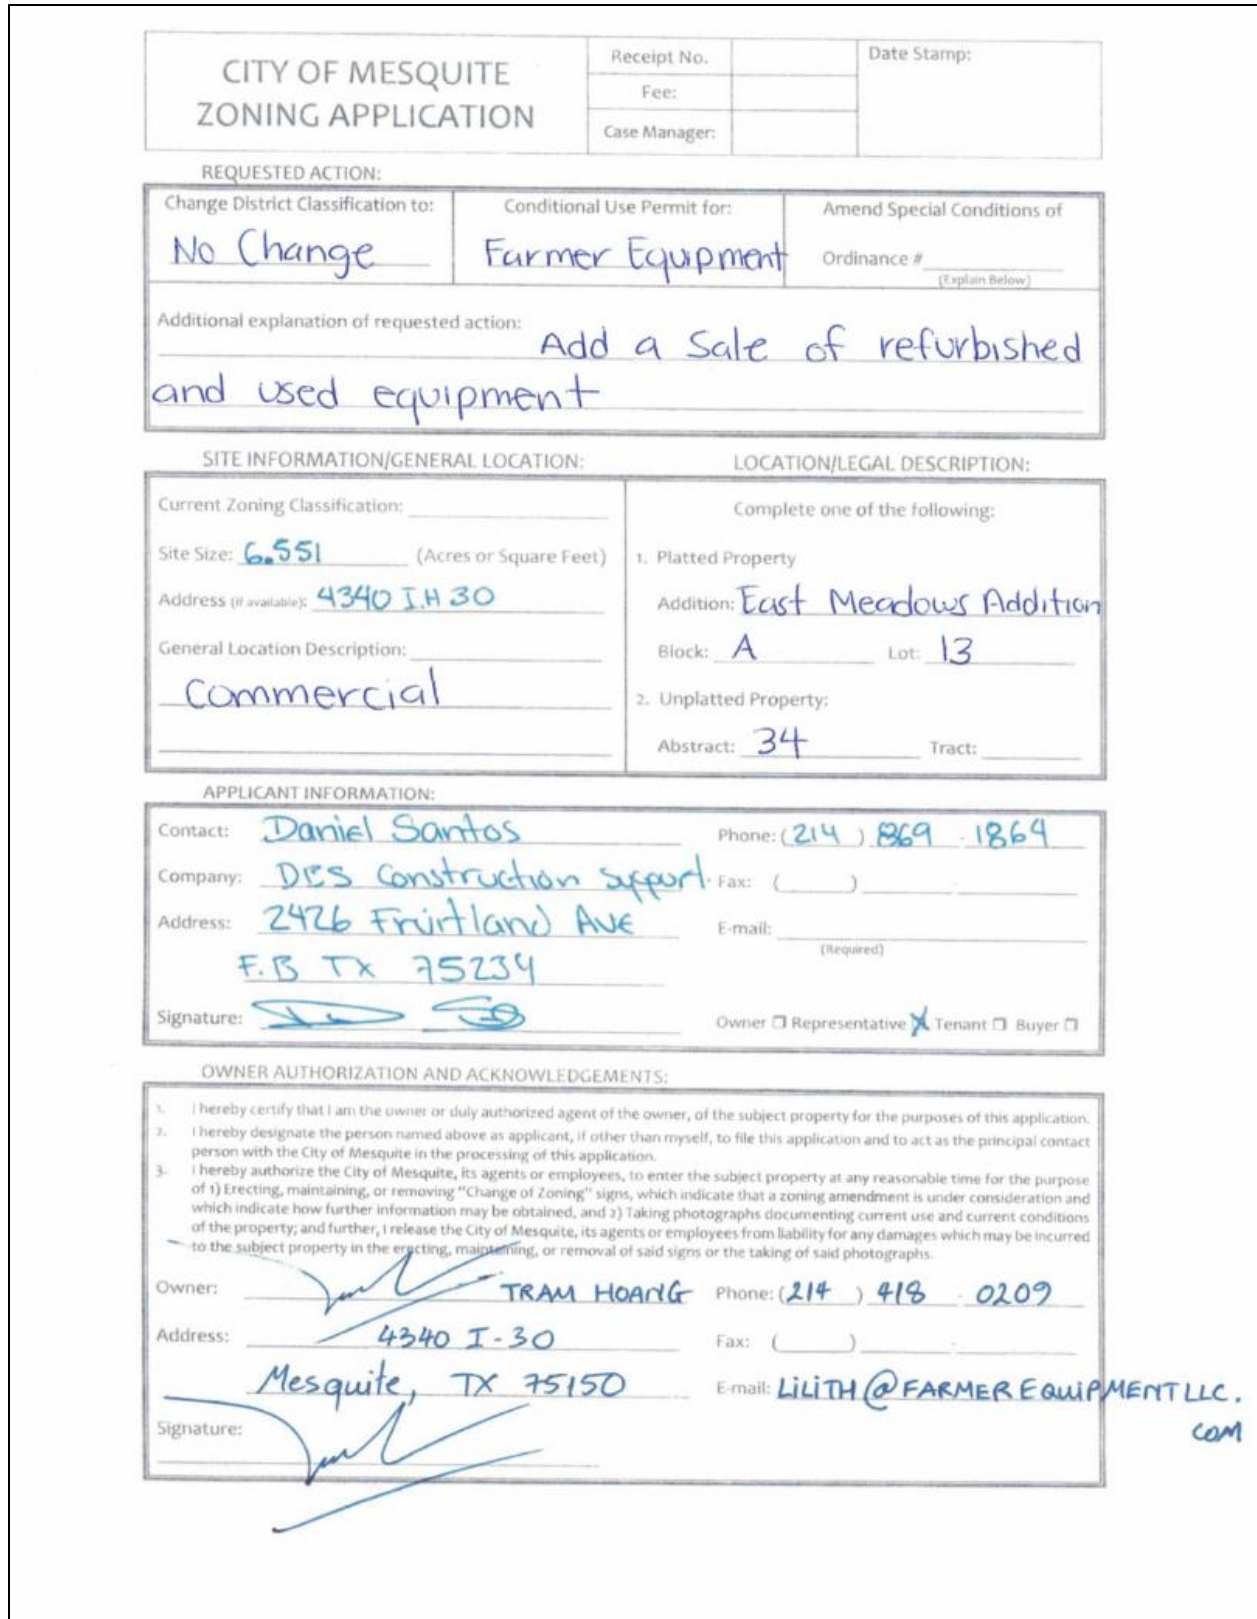 CITY OF MESQUITE
ZONING APPLICATION
Receipt No.
Fee:
Case Manager:
Date Stamp:
REQUESTED ACTION:
Change District Classification to:
No Change
Conditional Use Permit for:
Farmer Equipment
Amend Special Conditions of
Ordinance #
(Explain Below)
Additional explanation of requested action:
Add a Sale of refurbished
and used equipment
SITE INFORMATION/GENERAL LOCATION:
Current Zoning Classification:
Site Size: 6.551 (Acres or Square Feet)
Address (if available): 4340 I.H 30
General Location Description:
Commercial
LOCATION/LEGAL DESCRIPTION:
Complete one of the following:
1. Platted Property
Addition: East Meadows Addition
Block: A Lot: 13
2. Unplatted Property:
Abstract: 34 Tract:
APPLICANT INFORMATION:
Contact: Daniel Santos Phone: (214) 869 - 1864
Company: DCS Construction Support. Fax: ( ) -
Address: 2426 Fruitland Ave E-mail:
(Required)
F.B TX 75234
Signature: Owner Representative Tenant Buyer
OWNER AUTHORIZATION AND ACKNOWLEDGEMENTS:
1. I hereby certify that I am the owner or duly authorized agent of the owner, of the subject property for the purposes of this application.
2. I hereby designate the person named above as applicant, if other than myself, to file this application and to act as the principal contact
person with the City of Mesquite in the processing of this application.
3. I hereby authorize the City of Mesquite, its agents or employees, to enter the subject property at any reasonable time for the purpose
of 1) Erecting, maintaining, or removing "Change of Zoning" signs, which indicate that a zoning amendment is under consideration and
which indicate how further information may be obtained, and 2) Taking photographs documenting current use and current conditions
of the property; and further, I release the City of Mesquite, its agents or employees from liability for any damages which may be incurred
to the subject property in the erecting, maintaining, or removal of said signs or the taking of said photographs.
Owner: TRAM HOANG Phone: (214) 418 - 0209
Address: 4340 I-30 Fax: ( ) -
Mesquite, TX 75150 E-mail: LILITH@FARMEREQUIPMENTLLC.
COM
Signature: